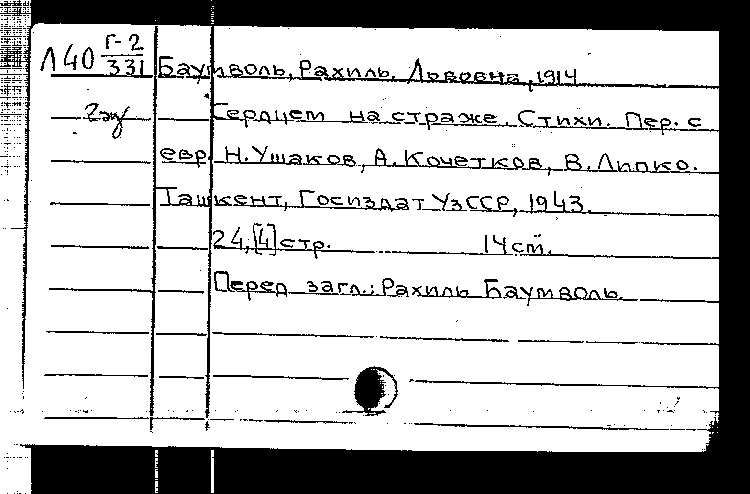 Л40 Г-2/331 Баумволь, Рахиль Львовна, 1914
2 эу Сердцем на страже. Стихи. Пер. с
евр. Н. Ушаков, А. Кочетков, В. Липко.
Ташкент, Госиздат УзССР, 1943.
24, [4] стр. 14 см.
Перед загл.: Рахиль Баумволь.